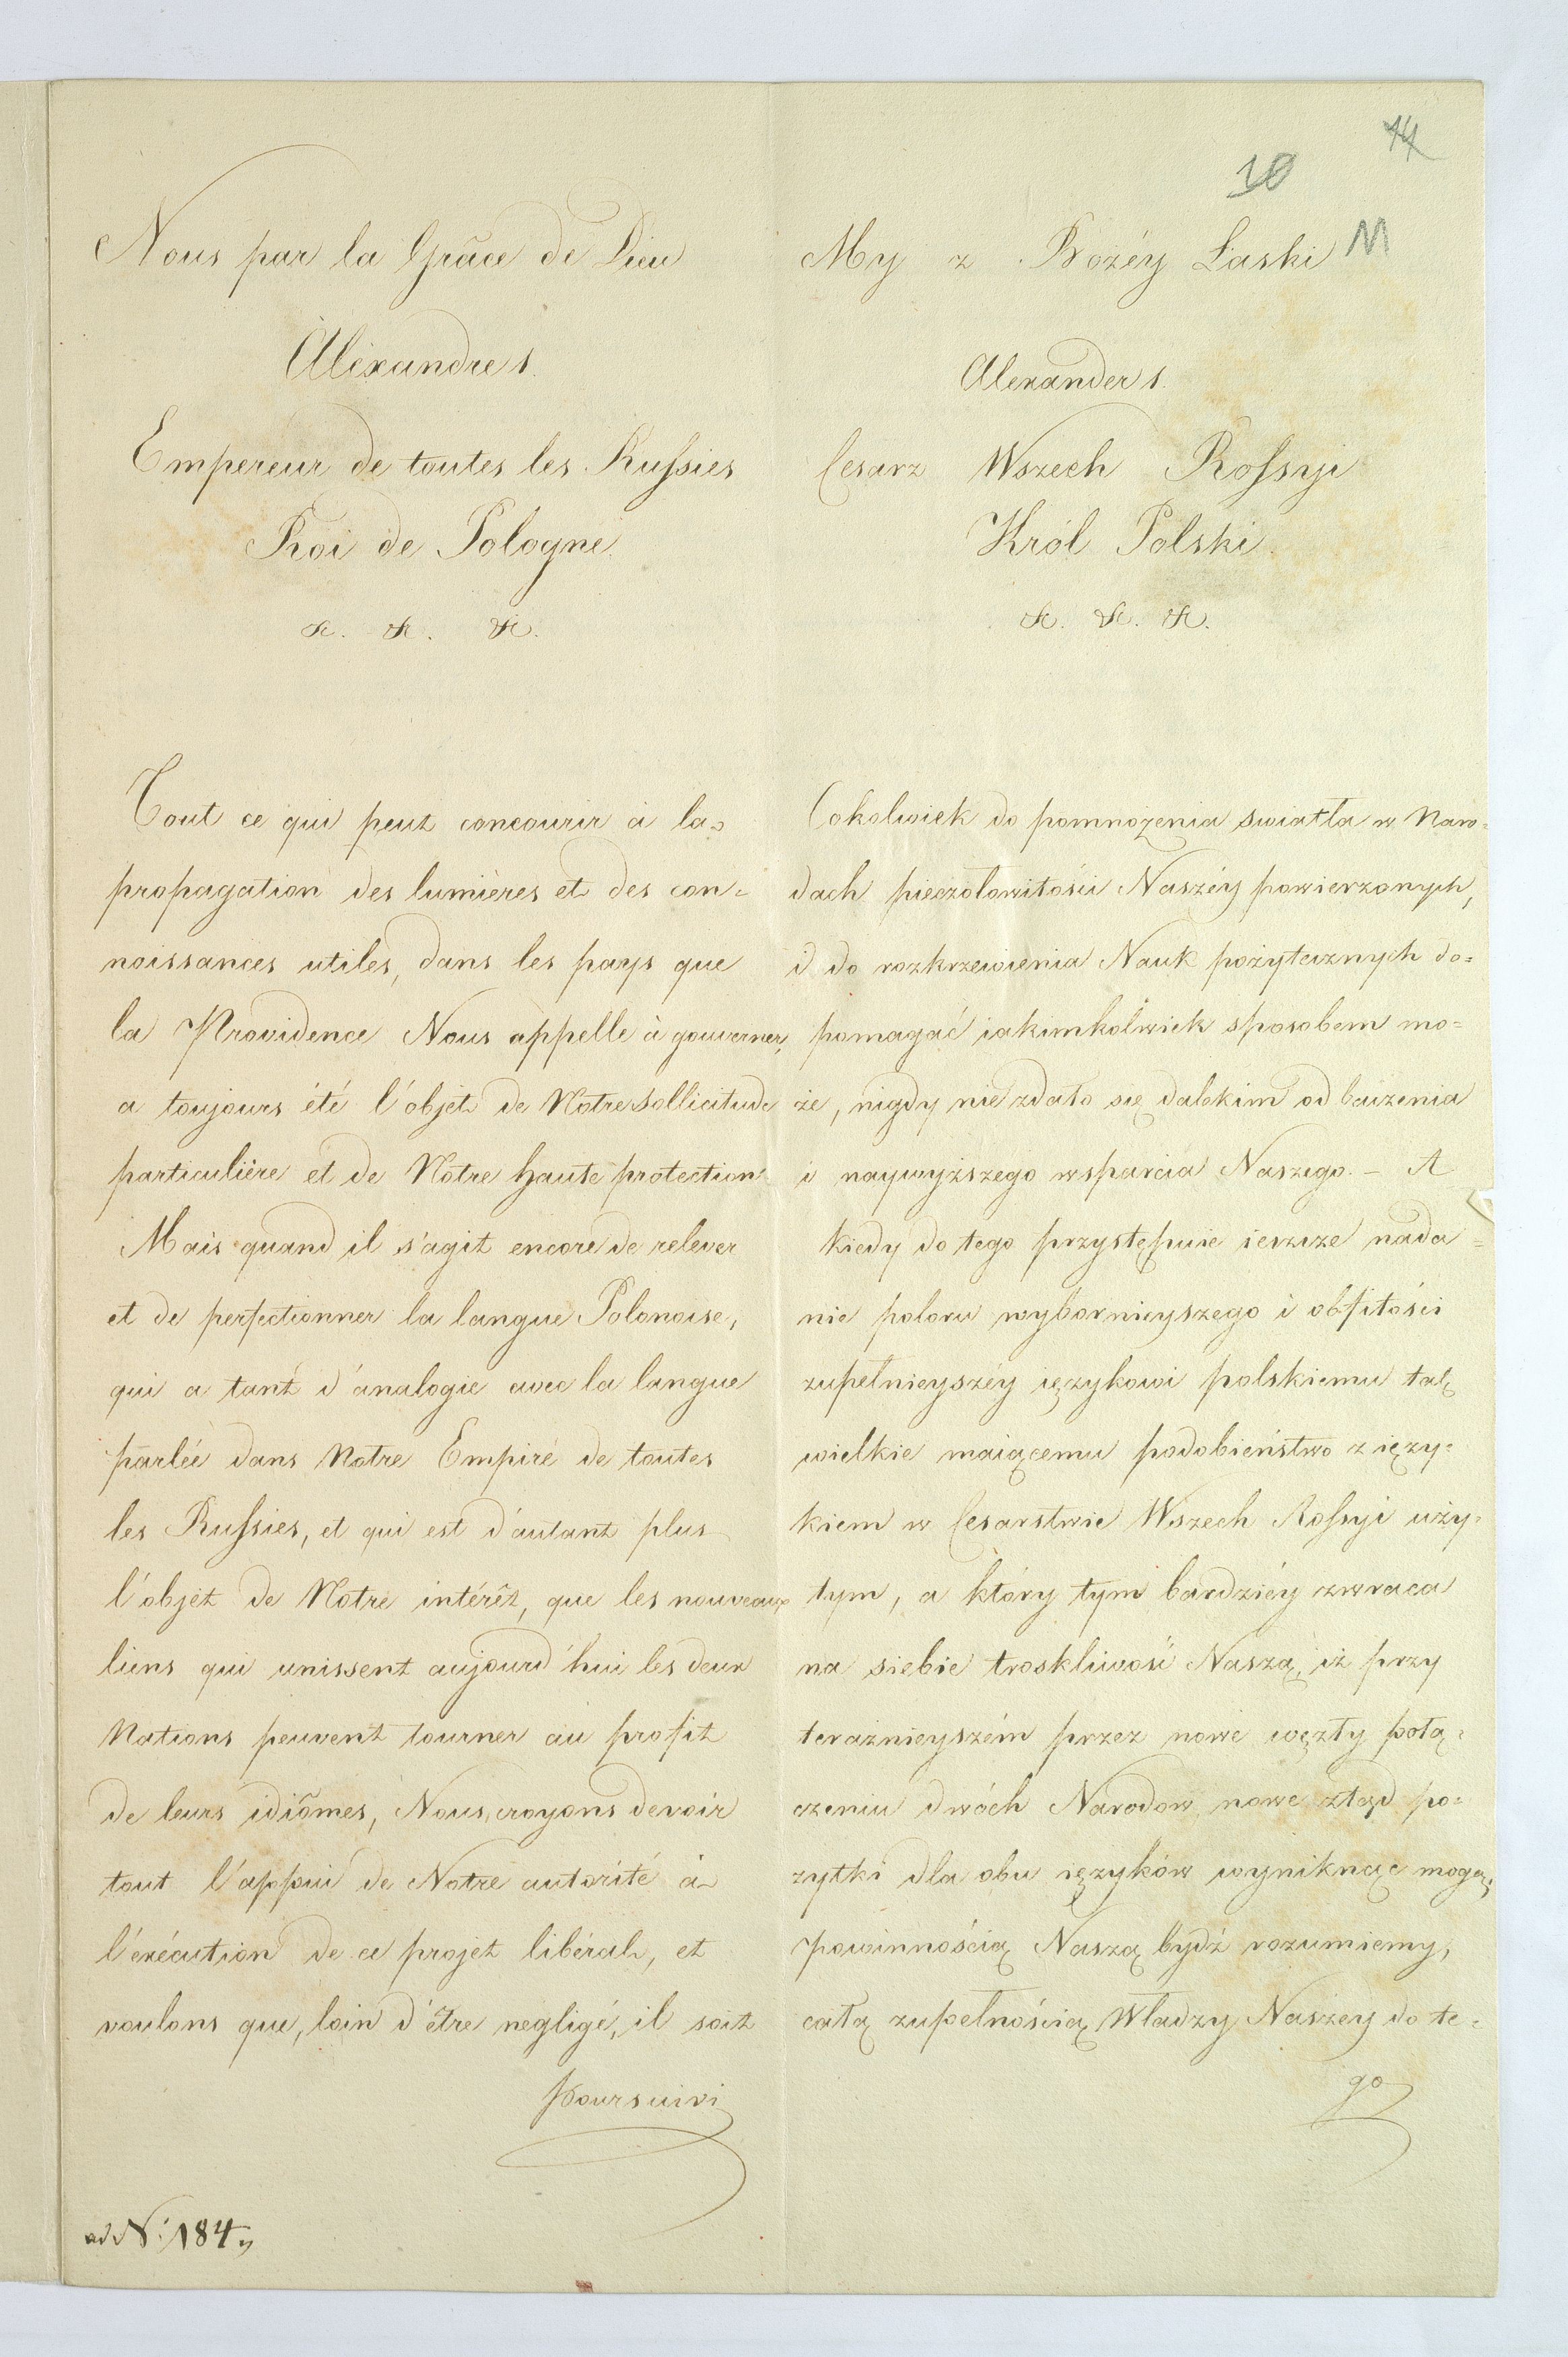 Nous par la Grâce de Dieu
Alexandre 1.
Empereur de toutes les Russies
Roi de Pologne
&c. &c. &c.
Tout ce qui peut concourir à la
propagation des lumières et des con-
noissances utiles, dans les pays que
la Providence Nous appelle à gouverner,
a toujours été l'objet de Notre sollicitude
particulière et de Notre haute protection
Mais quand il s'agit encore de relever
et de perfectionner la langue Polonoise,
qui a tant d'analogie avec la langue
parlée dans Notre Empire de toutes
les Russies, et qui est d'autant plus
l'objet de Notre intérêt, que les nouveaux
liens qui unissent aujourd'hui les deux
Nations peuvent tourner au profit
de leurs idiômes, Nous croyons devoir
tout l'appui de Notre autorité à
l'exécution de ce projet libéral, et
voulons que, loin d'être negligé, il soit
poursuivi
ad N: 184
10
14
My z Bożéy Łaski M
Alexander 1.
Cesarz Wszech Rossyi
Król Polski
&c. &c. &c.
Cokolwiek do pomnożenia swiatła w Naro-
dach pieczołowitości Naszéy powierzonych,
i do rozkrzewienia Nauk pożytecznych do-
pomagać iakimkolwiek sposobem mo-
że, nigdy nie zdało się dalekim od baczenia
i naywyższego wsparcia Naszego. – A
kiedy do tego przystępuie ieszcze nada-
nie poloru wybornieyszego i obfitości
zupełnieyszéy ięzykowi polskiemu tak
wielkie maiącemu podobieństwo z ięzy-
kiem w Cesarstwie Wszech Rossyi uży-
tym, a który tym bardziéy zwraca
na siebie troskliwość Naszą, iż przy
teraznieyszém przez nowe węzły połą-
czeniu dwóch Narodow, nowe ztąd po-
zytki dla obu ięzyków wyniknąć mogą,
powinnością Naszą bydź rozumiemy,
całą zupełnością Władzy Naszey do te-
go